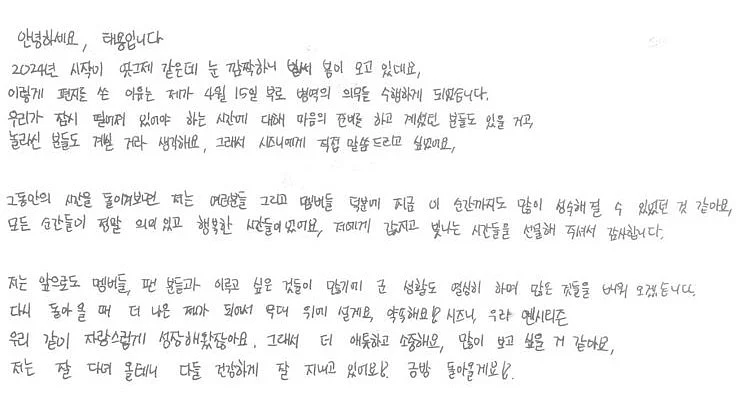 안녕하세요, 태용입니다
2024년 시작이 엊그제 같은데 눈 깜짝하니 벌써 봄이 오고 있네요,
이렇게 편지를 쓴 이유는 제가 4월 15일 부로 병역의 의무를 수행하게 되었습니다.
우리가 잠시 떨어져 있어야 하는 시간에 대해 마음의 준비를 하고 계셨던 분들도 있을 거고,
놀라신 분들도 계실 거라 생각해요, 그래서 시즈니에게 직접 말씀드리고 싶었어요,
그동안의 시간을 돌이켜보면 저는 여러분들 그리고 멤버들 덕분에 지금 이 순간까지도 많이 성숙해질 수 있었던 것 같아요,
모든 순간들이 정말 의미있고 행복한 시간들이었어요, 저에게 값지고 빛나는 시간들을 선물해 주셔서 감사합니다.
저는 앞으로도 멤버들, 팬 분들과 이루고 싶은 것들이 많기에 군 생활도 열심히 하며 많은 것들을 배워 오겠습니다.
다시 돌아올 때 더 나은 제가 되어서 무대 위에 설게요, 약속해요! 시즈니, 우리 엔시티즌
우리 같이 자랑스럽게 성장해왔잖아요. 그래서 더 애틋하고 소중해요, 많이 보고 싶을 거 같아요,
저는 잘 다녀 올테니 다들 건강하게 잘 지내고 있어요! 금방 돌아올게요!